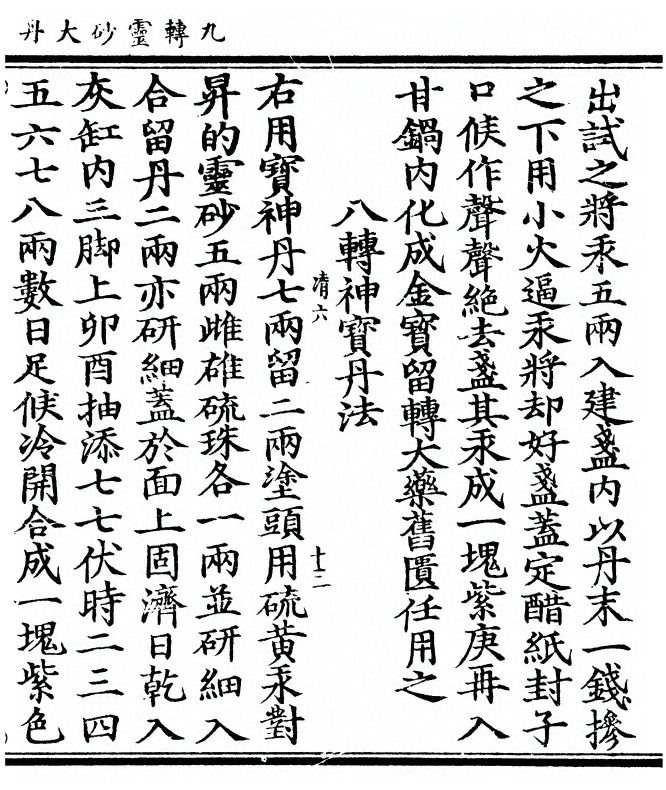 九轉靈砂大丹
出試之將汞五兩入建盞內以丹末一錢摻
之下用小火逼汞將却好盞蓋定醋紙封子
口候作聲聲絕去盞其汞成一塊紫庚再入
甘鍋內化成金寶留轉大藥舊匱任用之
八轉神寶丹法
清六
十二
右用寶神丹七兩留二兩塗頭用硫黃汞對
昇的靈砂五兩雌雄硫珠各一兩並研細入
合留丹二兩亦研細蓋於面上固濟日乾入
灰缸內三脚上卯酉抽添七七伏時二三四
五六七八兩數日足候冷開合成一塊紫色